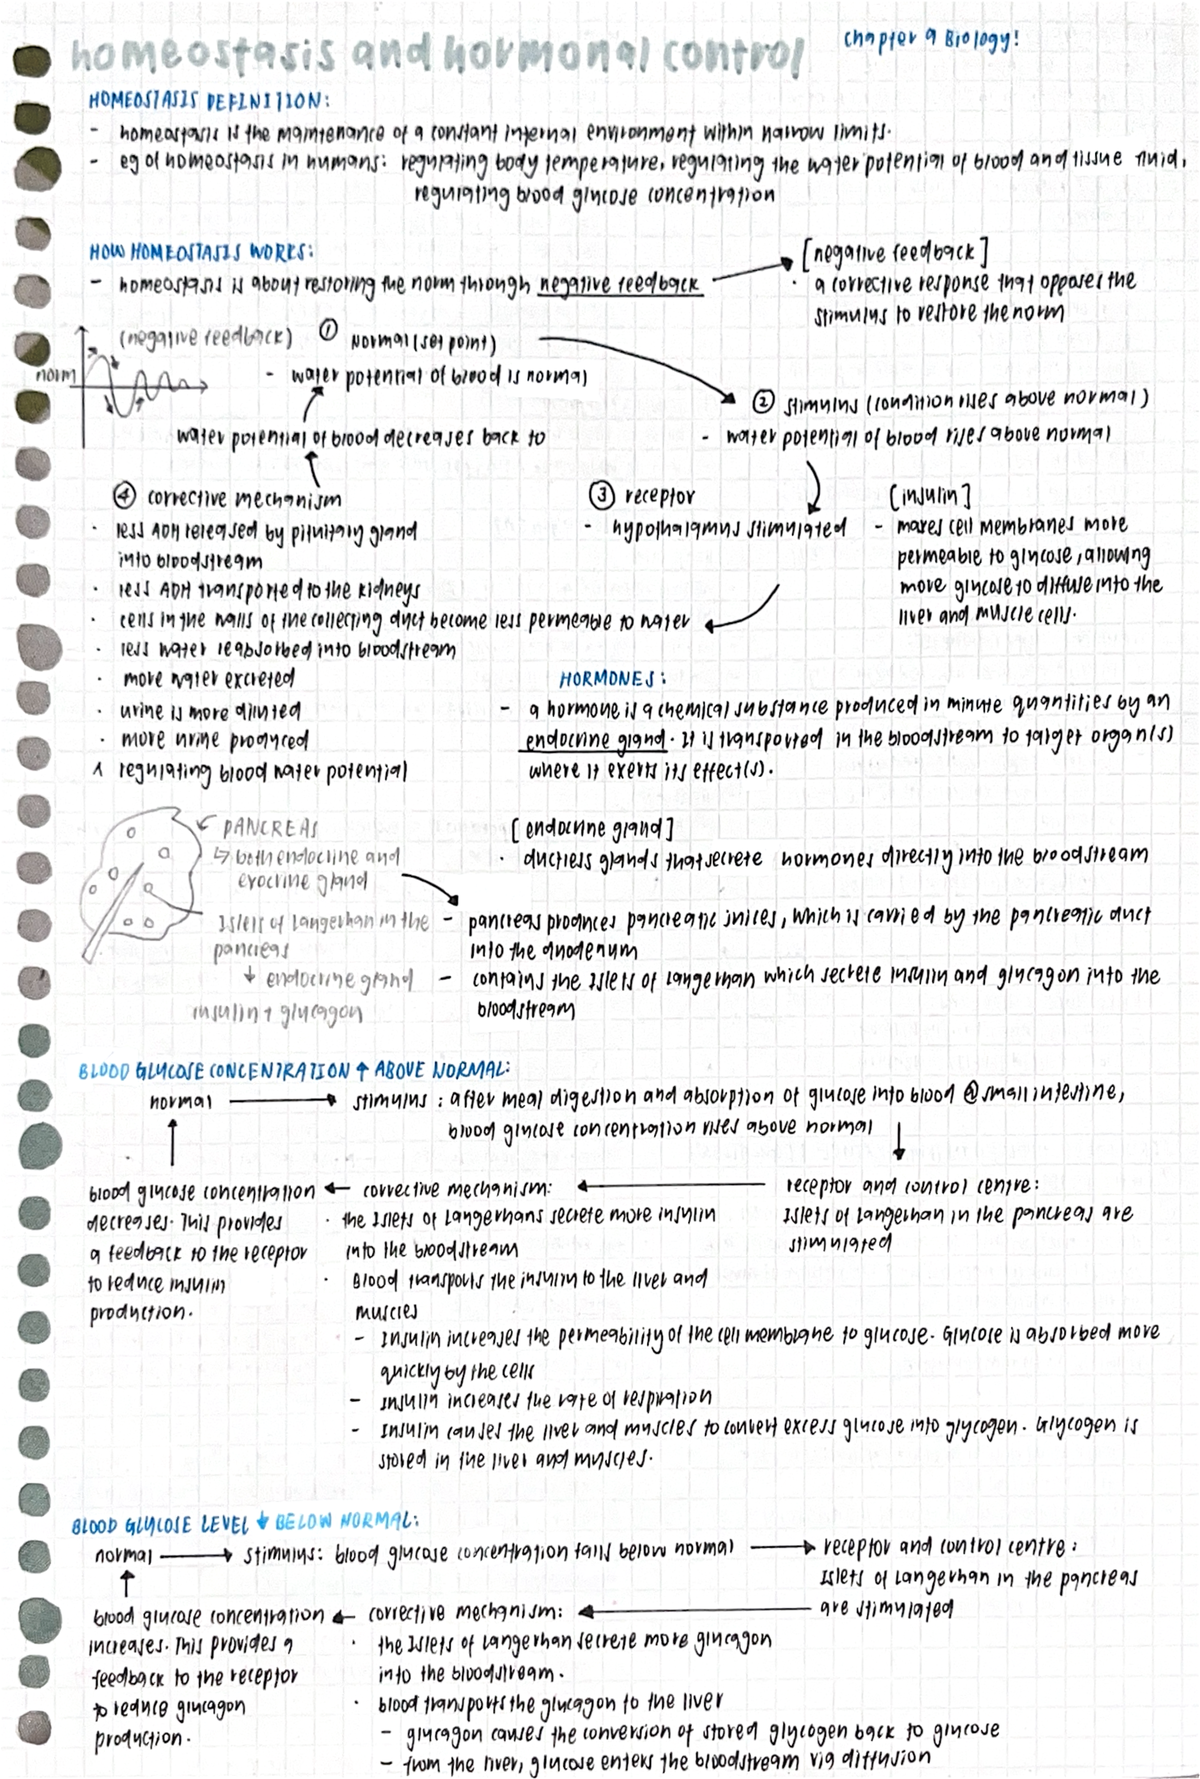 homeostasis and hormonal control
Chapter 9 Biology!
HOMEOSTASIS DEFINITION:
- homeostasis is the maintenance of a constant internal environment within narrow limits.
- eg of homeostasis in humans: regulating body temperature, regulating the water potential of blood and tissue fluid,
regulating blood glucose concentration
HOW HOMEOSTASIS WORKS:
- homeostasis is about restoring the norm through negative feedback
[negative feedback]
· a corrective response that opposes the
stimulus to restore the norm
(negative feedback)
norm
① Normal (set point)
- water potential of blood is normal
② stimulus (condition rises above normal)
- water potential of blood rises above normal
water potential of blood decreases back to
④ corrective mechanism
· less ADH released by pituitary gland
into bloodstream
· less ADH transported to the kidneys
· cells in the walls of the collecting duct become less permeable to water
· less water reabsorbed into bloodstream
· more water excreted
· urine is more diluted
· more urine produced
^ regulating blood water potential
③ receptor
- hypothalamus stimulated
[insulin]
- makes cell membranes more
permeable to glucose, allowing
more glucose to diffuse into the
liver and muscle cells.
HORMONES:
- a hormone is a chemical substance produced in minute quantities by an
endocrine gland. It is transported in the bloodstream to target organ(s)
where it exerts its effect(s).
PANCREAS
↳ both endocrine and
exocrine gland
Islets of Langerhan in the
pancreas
↓ endocrine gland
insulin + glucagon
[endocrine gland]
· ductless glands that secrete hormones directly into the bloodstream
- pancreas produces pancreatic juices, which is carried by the pancreatic duct
into the duodenum
- contains the Islets of Langerhan which secrete insulin and glucagon into the
bloodstream
BLOOD GLUCOSE CONCENTRATION ↑ ABOVE NORMAL:
normal → stimulus: after meal digestion and absorption of glucose into blood @ small intestine,
blood glucose concentration rises above normal
receptor and control centre:
Islets of Langerhan in the pancreas are
stimulated
corrective mechanism:
· the Islets of Langerhans secrete more insulin
into the bloodstream
· Blood transports the insulin to the liver and
muscles
- Insulin increases the permeability of the cell membrane to glucose. Glucose is absorbed more
quickly by the cells
- Insulin increases the rate of respiration
- Insulin causes the liver and muscles to convert excess glucose into glycogen. Glycogen is
stored in the liver and muscles.
blood glucose concentration
decreases. This provides
a feedback to the receptor
to reduce insulin
production.
BLOOD GLUCOSE LEVEL ↓ BELOW NORMAL:
normal → stimulus: blood glucose concentration falls below normal → receptor and control centre:
Islets of Langerhan in the pancreas
are stimulated
corrective mechanism:
· the Islets of Langerhan secrete more glucagon
into the bloodstream.
· blood transports the glucagon to the liver
- glucagon causes the conversion of stored glycogen back to glucose
- from the liver, glucose enters the bloodstream via diffusion
blood glucose concentration
increases. This provides a
feedback to the receptor
to reduce glucagon
production.